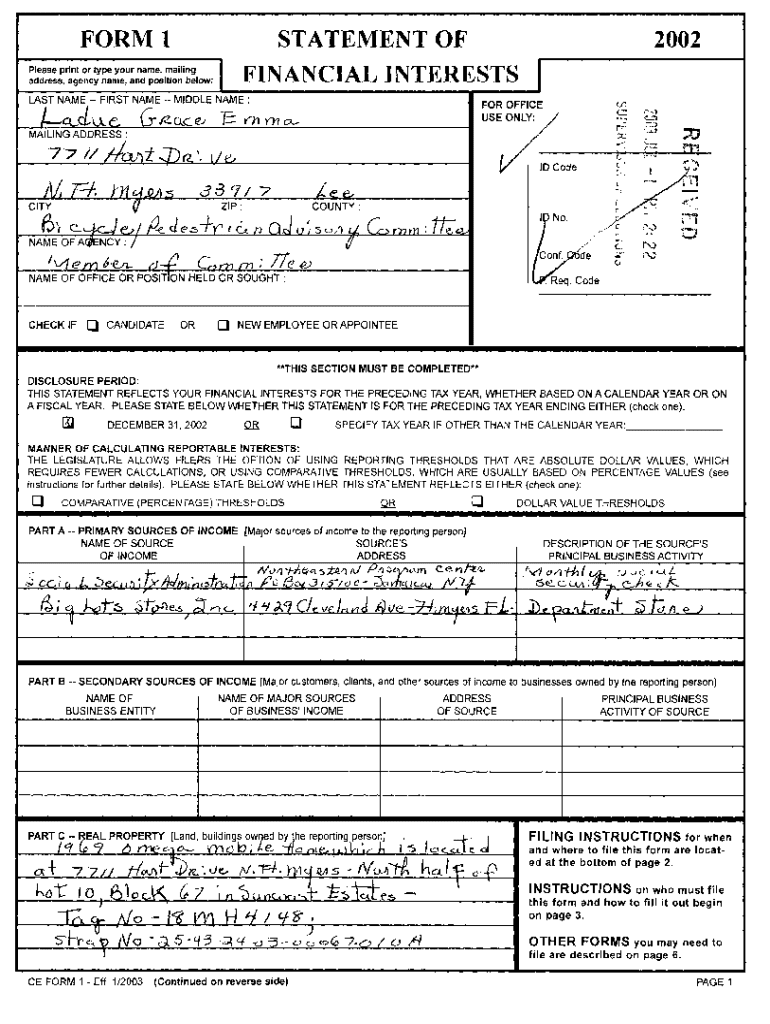 FORM 1 STATEMENT OF 2002
Please print or type your name, mailing
address, agency name, and position below:
FINANCIAL INTERESTS
LAST NAME -- FIRST NAME -- MIDDLE NAME :
Ladue Grace Emma
MAILING ADDRESS :
7711 Hart Drive
N. Ft. Myers 33917 Lee
CITY ZIP : COUNTY :
Bicycle/Pedestrian Advisory Committee
NAME OF AGENCY :
Member of Committee
NAME OF OFFICE OR POSITION HELD OR SOUGHT :
CHECK IF CANDIDATE OR NEW EMPLOYEE OR APPOINTEE
FOR OFFICE
USE ONLY:
ID Code
ID No.
Conf. Code
P. Req. Code
RECEIVED
**THIS SECTION MUST BE COMPLETED**
DISCLOSURE PERIOD:
THIS STATEMENT REFLECTS YOUR FINANCIAL INTERESTS FOR THE PRECEDING TAX YEAR, WHETHER BASED ON A CALENDAR YEAR OR ON
A FISCAL YEAR. PLEASE STATE BELOW WHETHER THIS STATEMENT IS FOR THE PRECEDING TAX YEAR ENDING EITHER (check one).
DECEMBER 31, 2002 OR SPECIFY TAX YEAR IF OTHER THAN THE CALENDAR YEAR:
MANNER OF CALCULATING REPORTABLE INTERESTS:
THE LEGISLATURE ALLOWS FILERS THE OPTION OF USING REPORTING THRESHOLDS THAT ARE ABSOLUTE DOLLAR VALUES, WHICH
REQUIRES FEWER CALCULATIONS, OR USING COMPARATIVE THRESHOLDS, WHICH ARE USUALLY BASED ON PERCENTAGE VALUES (see
instructions for further details). PLEASE STATE BELOW WHETHER THIS STATEMENT REFLECTS EITHER (check one):
COMPARATIVE (PERCENTAGE) THRESHOLDS OR DOLLAR VALUE THRESHOLDS
PART A -- PRIMARY SOURCES OF INCOME [Major sources of income to the reporting person]
NAME OF SOURCE SOURCE'S DESCRIPTION OF THE SOURCE'S
OF INCOME ADDRESS PRINCIPAL BUSINESS ACTIVITY
Northeastern Program Center Monthly social
Social Security Administration PO Box 315100 - Jamaica NY security check
Big Lots Stores, Inc 4429 Cleveland Ave - Ft. myers FL. Department Store
PART B -- SECONDARY SOURCES OF INCOME [Major customers, clients, and other sources of income to businesses owned by the reporting person]
NAME OF NAME OF MAJOR SOURCES ADDRESS PRINCIPAL BUSINESS
BUSINESS ENTITY OF BUSINESS' INCOME OF SOURCE ACTIVITY OF SOURCE
PART C -- REAL PROPERTY [Land, buildings owned by the reporting person]
1969 Omega mobile Home which is located
at 7711 Hart Drive N. Ft. myers - North half of
Lot 10, Block 67 in Suncoast Estates -
Tag No - 18MH4148;
Strap No - 25-43-24 03-00067.010A
FILING INSTRUCTIONS for when
and where to file this form are locat-
ed at the bottom of page 2.
INSTRUCTIONS on who must file
this form and how to fill it out begin
on page 3.
OTHER FORMS you may need to
file are described on page 6.
CE FORM 1 - Eff. 1/2003 (Continued on reverse side) PAGE 1